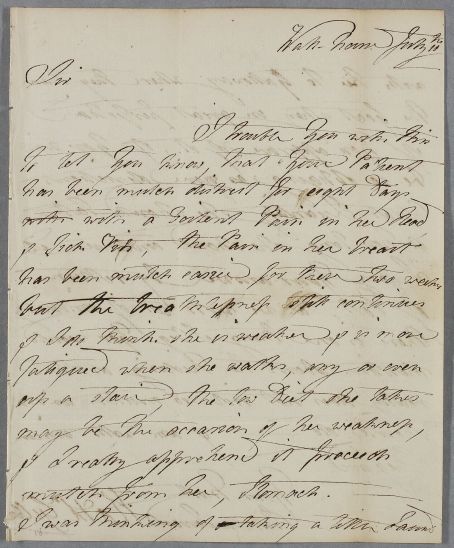 July 11th
Sir
I trouble You with this
to let You know, that Your Patient
has been mutch distrest for eight Days
with a Violent Pain in her Head,
& Sick Fits, the Pain in her breast
has been mutch easier for these two weeks
but the breathlessness still continues
I think she is weaker & is more
fatigued when she walks, any or even
up a stair, the low Diet she takes
may be the occasion of her weakness,
I really apprehend it proceeds
mutch from her Stomach.
I was thinking of taking a little